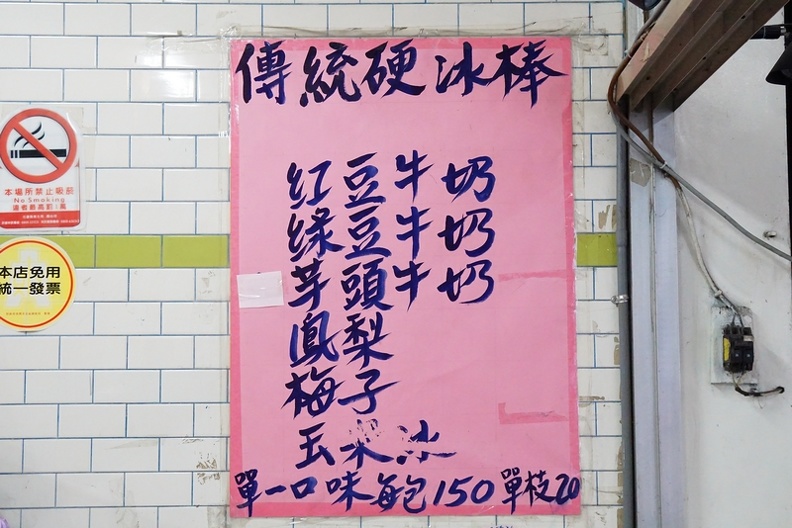 傳統硬冰棒
紅豆牛奶
綠豆牛奶
芋頭牛奶
鳳梨
梅子
單一口味每包150 單枝20
本場所禁止吸菸
No Smoking
本店免用
統一發票